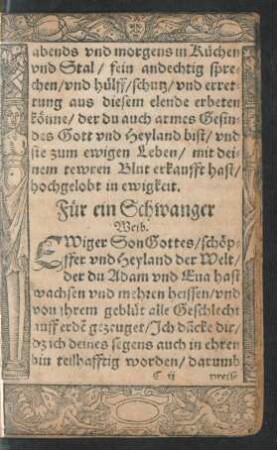 abends vnd morgens in Küchen
vnd Stal / fein andechtig spre-
chen / vnd hülff / schutz / vnd erret-
tung aus diesem elende erbeten
könne / der du auch armes Gesin-
des Gott vnd Heyland bist / vnd
sie zum ewigen Leben / mit dei-
nem tewren Blut erkaufft hast /
hochgelobt in ewigkeit.
Für ein Schwanger
Weib.
EWiger Son Gottes / schöp-
ffer vnd Heyland der Welt /
der du Adam vnd Eua hast
wachsen vnd mehren heissen / vnd
von jhrem geblüt alle Geschlecht
auff erdẽ gezeuget / Ich dãcke dir /
dz ich deines segens auch in ehren
bin teilhafftig worden / darumb
C ij weiß